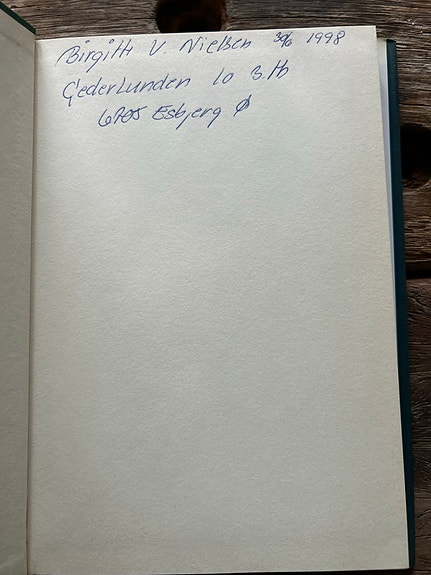 Birgitt V. Nielsen 30/6 1998
Gederlunden 10 3.th
6705 Esbjerg Ø